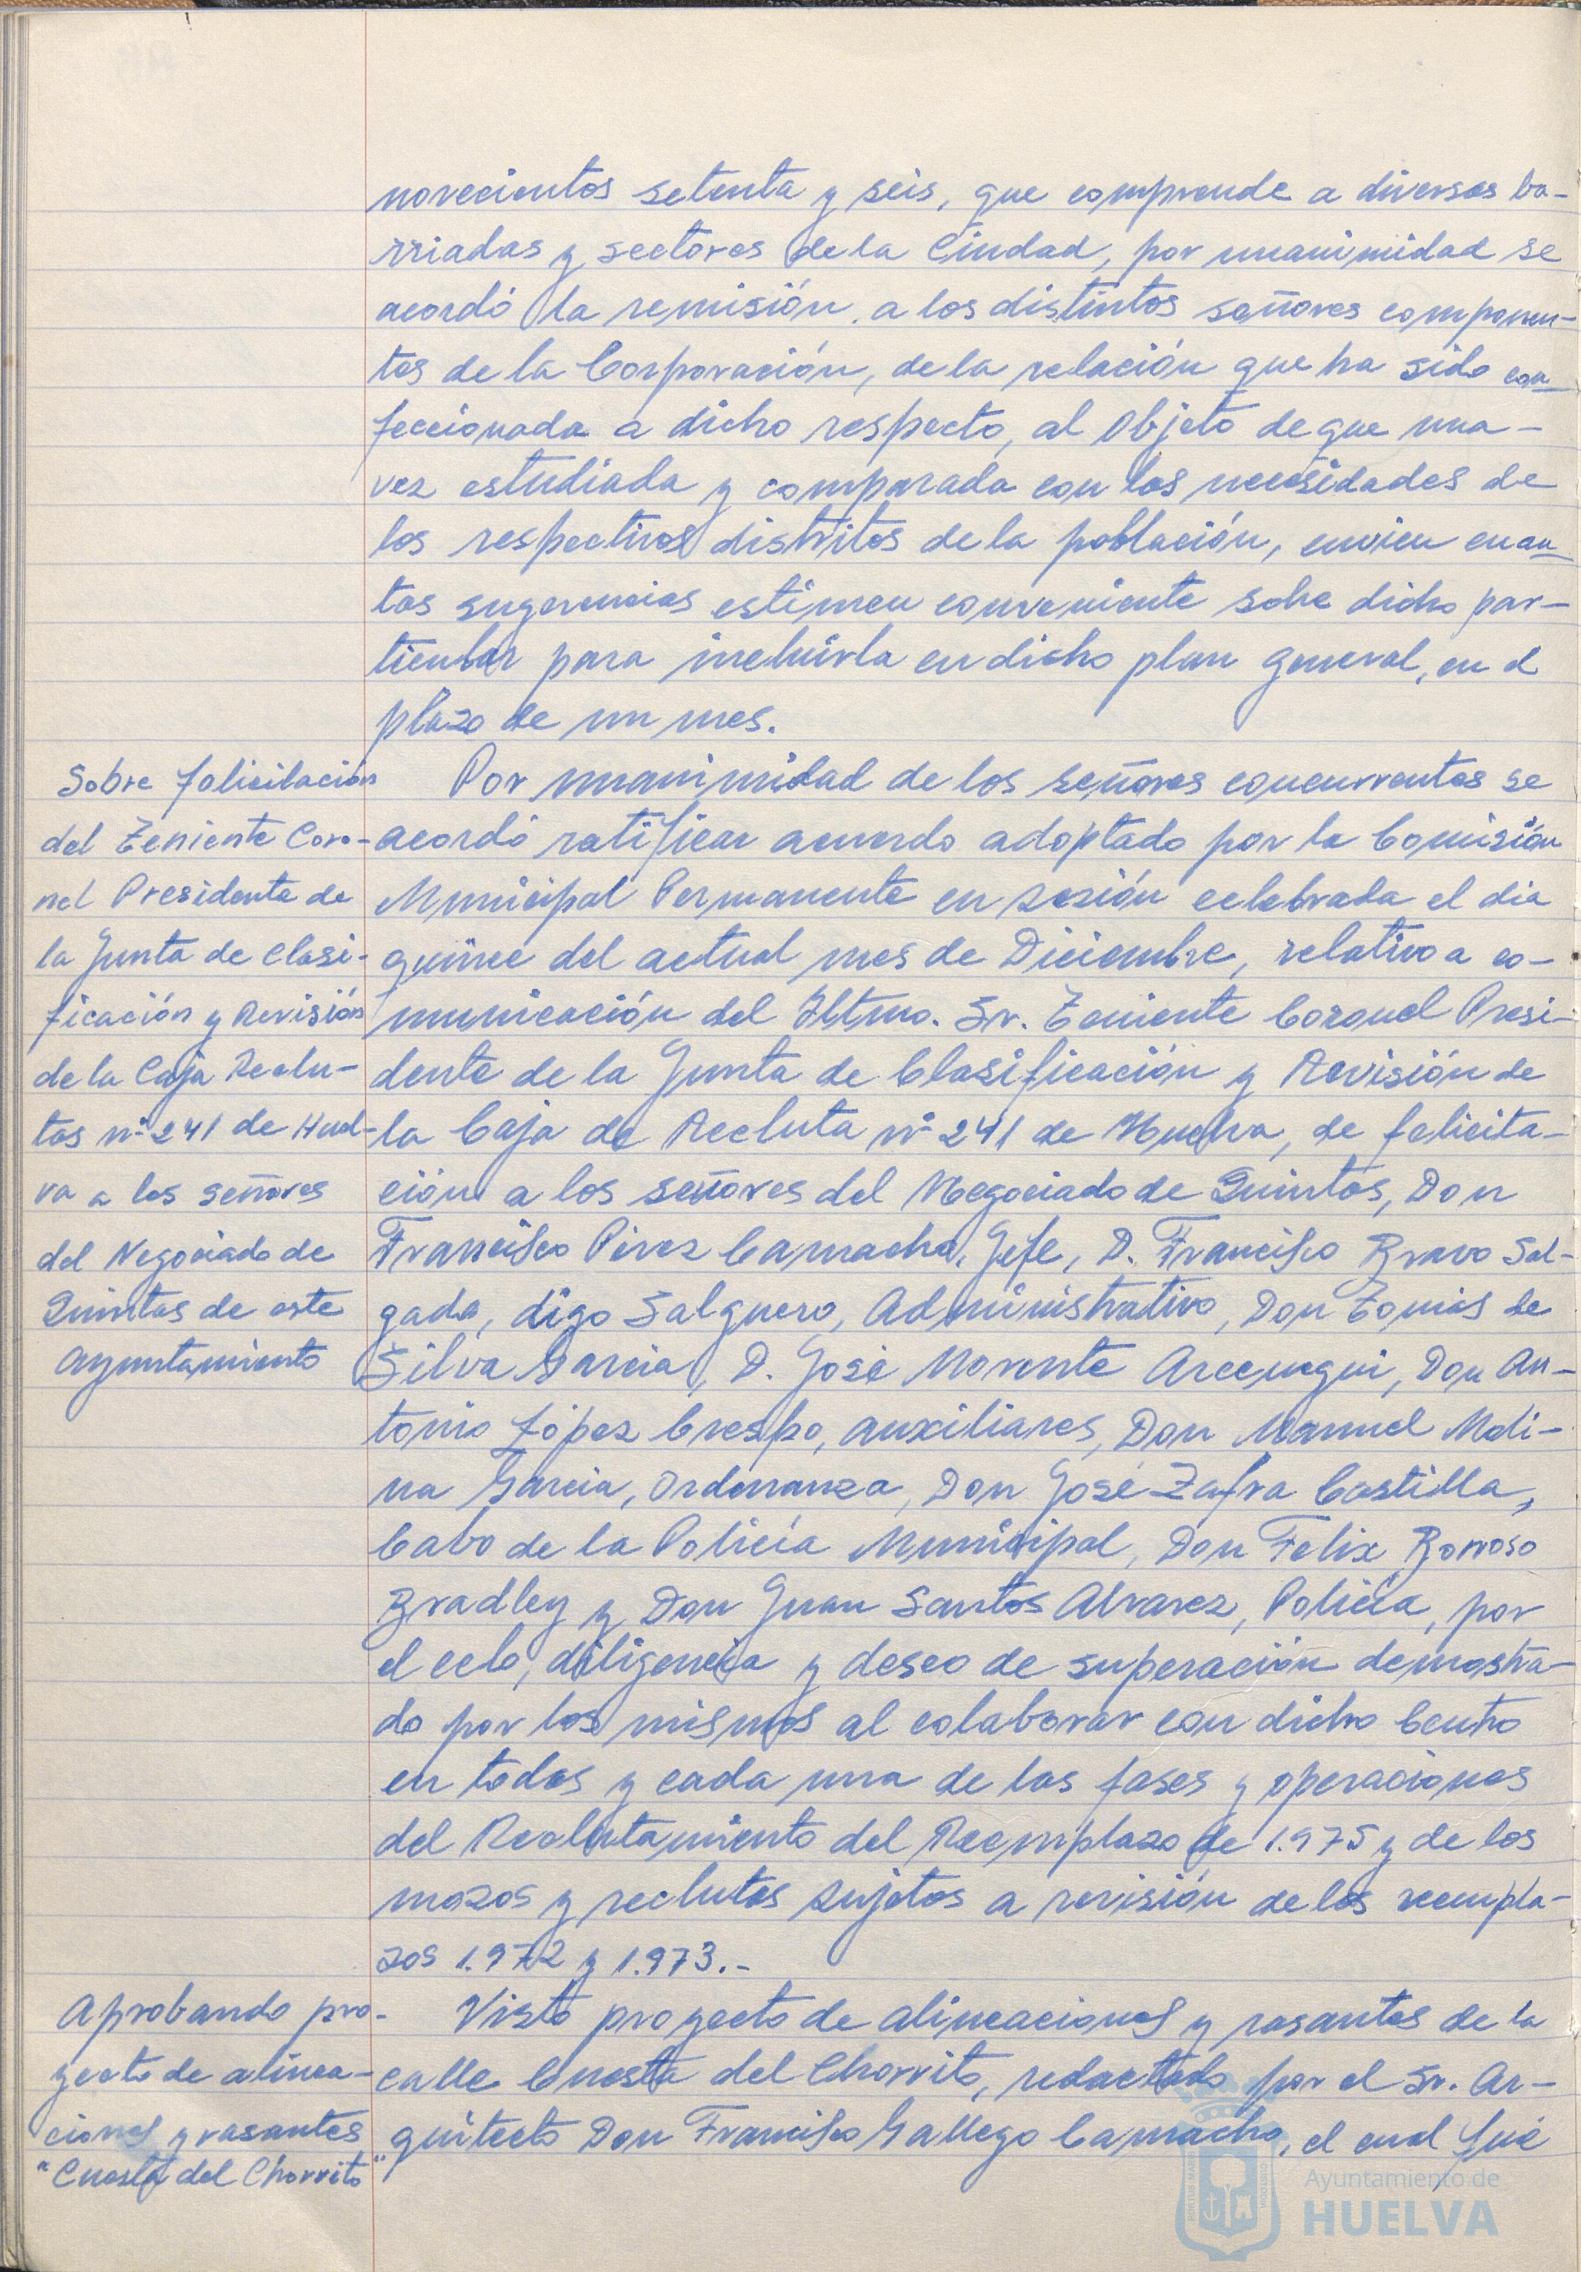 novecientos setenta y seis, que comprende a diversas ba-
rriadas y sectores de la Ciudad, por unanimidad se
acordó la remisión a los distintos señores componen-
tes de la Corporación, de la relación que ha sido con
feccionada a dicho respecto, al objeto de que una-
vez estudiada y comparada con las necesidades de
los respectivos distritos de la población, envien cuan
tas sugerencias estimen conveniente sobre dicho par-
ticular para incluirla en dicho plan general, en el
plazo de un mes.
Sobre felicitación
del Teniente Coro-
nel Presidente de
la Junta de Clasi-
ficación y Revisión
de la Caja Reclu-
tas nº 241 de Huel-
va a los señores
del Negociado de
Quintas de este
Ayuntamiento
Por unanimidad de los señores concurrentes se
acordó ratificar acuerdo adoptado por la Comisión
Municipal Permanente en sesión celebrada el dia
quince del actual mes de Diciembre, relativo a co-
municación del Iltmo. Sr. Teniente Coronel Presi-
dente de la Junta de Clasificación y Revisión de
la Caja de Recluta nº 241 de Huelva, de felicita-
ción a los señores del Negociado de Quintas, Don
Francisco Pérez Camacho, Jefe, D. Francisco Bravo Sal-
gado, digo Salguero, Administrativo, Don Tomás de
Silva Garcia, D. José Morente Arcenegui, Don An-
tonio López Crespo, auxiliares, Don Manuel Moli-
na Garcia, Ordenanza, Don José Zafra Castilla,
Cabo de la Policía Municipal, Don Felix Borroso
Bradley y Don Juan Santos Alvarez, Policía, por
el celo, diligencia y deseo de superación demostra-
do por los mismos al colaborar con dicho Centro
en todas y cada una de las fases y operaciones
del Reclutamiento del Reemplazo de 1.975 y de los
mozos y reclutas sujetos a revisión de los reempla-
zos 1.972 y 1.973.-
Aprobando pro-
yecto de alinea-
ciones y rasantes
"Cuesta del Chorrito"
Visto proyecto de alineaciones y rasantes de la
calle Cuesta del Chorrito, redactado por el Sr. Ar-
quitecto Don Francisco Gallego Camacho, el cual fué
Ayuntamiento de
HUELVA